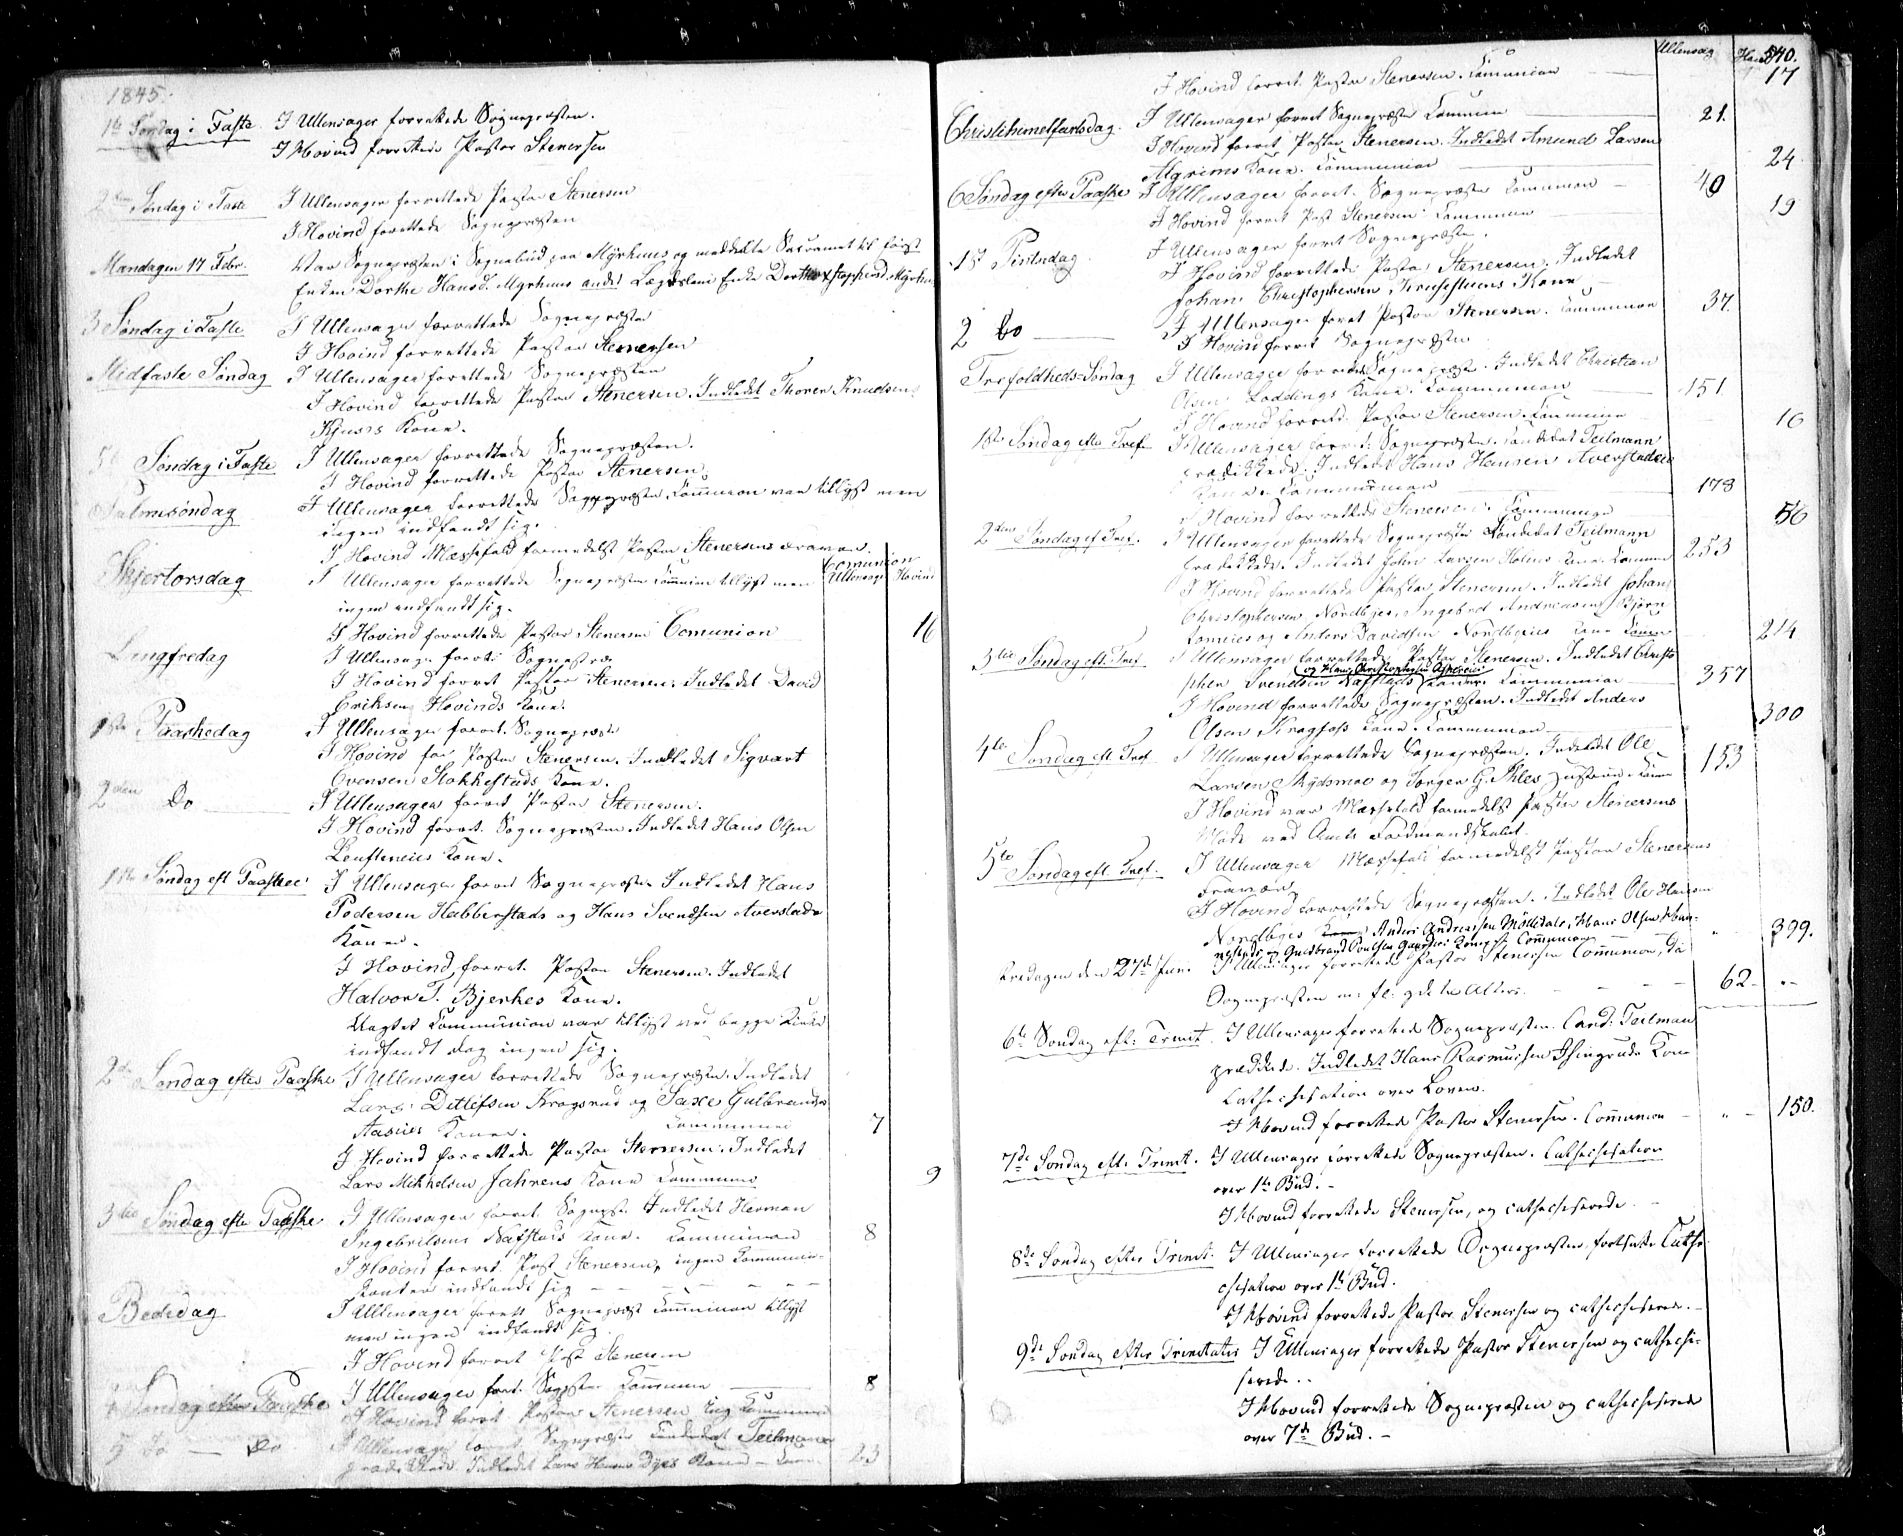 1845.
1te Søndag i Faste. I Ullensager forrettede Sognepræsten.
I Hovind forrettede Pastor Stenersen
2den Søndag i Faste I Ullensager forrettede Pastor Stenersen
I Hovind forrettede Sognepræsten
Mandagen 17 Febr. Var Sognepræsten i Sognebud paa Myrhuus og meddelte Sacramet til
Enken Dorthe Hansd. Myrhuus andet Lægdslem Enke Dorthe Myrhuus
3 Søndag i Faste I Ullensager forrettede Sognepræsten
I Hovind forrettede Pastor Stenersen
Midfaste Søndag I Ullensager forrettede Sognepræsten
I Hovind forrettede Pastor Stenersen. Indledet Thorer Knudsens
Kone.
5te Søndag i Faste I Ullensager forrettede Sognepræsten.
I Hovind forrettede Pastor Stenersen.
Palmesøndag I Ullensager forrettede Sognepræsten Communion var tillyst men
ingen indfandt sig.
I Hovind Messefald formedelst Pastor Stenersens Fravær.
Communion
Ullensager Hovind
Skjertorsdag I Ullensager forrettede Sognepræsten Communion tillyst men
ingen indfandt sig.
I Hovind forrettede Pastor Stenersen Comunion 16
Langfredag I Ullensager forret. Sognepræ
I Hovind forret Pastor Stenersen. Indledet David
Eriksens Hovinds Kone.
1ste Paaskedag I Ullensager forret. Sognepræste
I Hovind for Pastor Stenersen. Indledet Sigvart
Evensen Stokkestads Kone.
2den Do I Ullensager forret Pastor Stenersen.
I Hovind forret. Sognepræsten. Indledet Hans Olsen
Kone.
1ste Søndag eft Paaske I Ullensager forret Sognepræsten Indledet Hans
Pedersen Habberstads og Hans Svendsen Averstads
Koner.
I Hovind forret. Pastor Stenersen. Indledet
Halvor T. Bjerkes Kone.
Uagtet Communion var tillyst ved begge Kirker
indfandt dog ingen sig.
2den Søndag efter Paaske I Ullensager forrettede Sognepræsten Indledet
Lars Ditlefsen Krogsrud og Saxe Gulbrands
Koner. Communion 7
I Hovind forrettede Pastor Stenersen. Indledet
Lars Mikkelsen Jahrens Kone Communion 9
3die Søndag efter Paaske I Ullensager forret. Sognepr. Indledet Herman
Ingebrittsens Nafstads Kone. Communion 8
I Hovind forret. Past Stenersen, ingen Communi-
kanter indfandt sig
Bededag I Ullensager forrett Sognepræst Communion tillyst
men ingen indfandt sig.
I Hovind forret Past Stenersen
4 Søndag efter Paaske I Ullensager foret. Sognepræsten Communion 8
I Hovind forret Pastor Stenersen Ing Communion
5 Do Do I Ullensager forret Sognepræsten Candidat Teilmann
prædikkede. Indledet Lars Hansen Kone 23
Ullensag Hovd 540.
I Hovind forret. Pastor Stenersen. Communion 17
Christihimelfartsdag. I Ullensager forret Sognepræste Communion 21.
I Hovind forret Pastor Stenersen. Indledet Amund Larsen
Algrims Kone. Communion 24
6 Søndag efter Paaske I Ullensager forret. Sognepræste Communion 40
I Hovind forret Past Stenersen Communion 19
1st Pintsdag I Ullensager forret Sognepræste.
I Hovind forrettede Pastor Stenersen. Indledet
Johan Christophersen Kone
2 Do I Ullensager foret Pastor Stenersen. Communion 37.
I Hovind forret Sognepræsten
Trefoldheds-Søndag I Ullensager forrettede Sognepræst. Indledet Christian
Olsen Loddings Kone. Communion 151
I Hovind forrettd. Pastor Stenersen. Communion 16
1ste Søndag efter Tref. I Ullensager forret: Sognepræsten. Candidat Teilmann
prædikkede. Indledet Hans Hansen Averstaden
Kone. Communion 178
I Hovind forrettede Stenersen. Communion 56
2den Søndag ef Tref. I Ullensager forrettede Sognepræsten Candidat Teilmann
prædikkede. Indledet John Larsen Holens Kone Commun 253
I Hovind forrettede Pastor Stenersen. Indledet Johan
Christophersen Nordbye, Ingebret Andreasens Bjørn
og Anders Davidsen Nordbeies Kone Commun 214
3die Søndag eft. Tref. I Ullensager forrettede Pastor Stenersen. Indledet Christo
og Hans Christophersen
phen Svendsen Nafstads Koner. Communion 357
I Hovind forrettede Sognepræsten. Indledet Anders
Olsen Krogfoss Kone. Communion 300
4de Søndag eft Tref I Ullensager forrettede Sognepræsten. Indledet Ole
Larsen og Jørgen G. Ihles Hustruer. Commu 153
I Hovind var Messefald formedelst Pastor Stenersens
Møde ved Amts Formandskabet.
5te Søndag eft. Tref. I Ullensager Messefald formedelst Pastor Stenersens
Fravær
I Hovind forrettede Sognepræsten. Indledet Ole Hansen
Nordbyes Kone Anders Andreasen Mølledals, Hans Olsen
og Guldbrand Poulsen Koner. Communion 399.
Fredagen den 27de Juni. I Ullensager forrettede Pastor Stenersen Communion, da
Sognepræsten m: fl: gik til Alters. 62
6te Søndag eft: Trinit. I Ullensager forrettede Sognepræsten. Cand: Teilman
prædikede. Indledet Hans Rasmussen Kone
Cathechisation over Loven.
I Hovind forrettede Pastor Stenersen. Communion 150.
7de Søndag eft: Trinit. I Ullensager forrettede Sognepræsten. Cathechisation
over 1te Bud. -
I Hovind forrettede Stenersen, og cathechiserede. -
8de Søndag efter Trinit: I Ullensager forrettede Sognepræsten, fortsatte Cathe-
chisation over 1te Bud.
I Hovind forrettede Pastor Stenersen og cathechiserede. -
9de Søndag efter Trinitatis I Ullensager forrettede Pastor Stenersen og cathechi-
serede. -
I Hovind forrettede Sognepræsten og cathechiserede
over 7de Bud. -